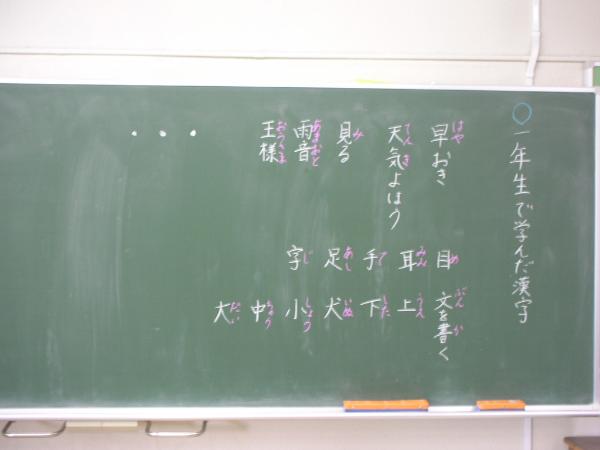 ○一年生で学んだ漢字
はや
早おき
てんき
天気よほう
み
見る
あまおと
雨音
おうさま
王様
・・・
め
目
みみ
耳
て
手
あし
足
じ
字
ぶん か
文を書く
うえ
上
した
下
いぬ
犬
しょう
小
ちゅう
中
だい
大